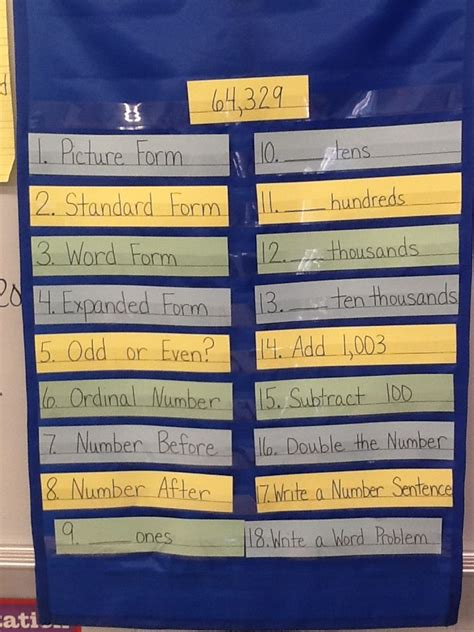 64,329
1. Picture Form
2. Standard Form
3. Word Form
4. Expanded Form
5. Odd or Even?
6. Ordinal Number
7. Number Before
8. Number After
9. ____ ones
10. ____ tens
11. ____ hundreds
12. ____ thousands
13. ____ ten thousands
14. Add 1,003
15. Subtract 100
16. Double the Number
17. Write a Number Sentence
18. Write a Word Problem